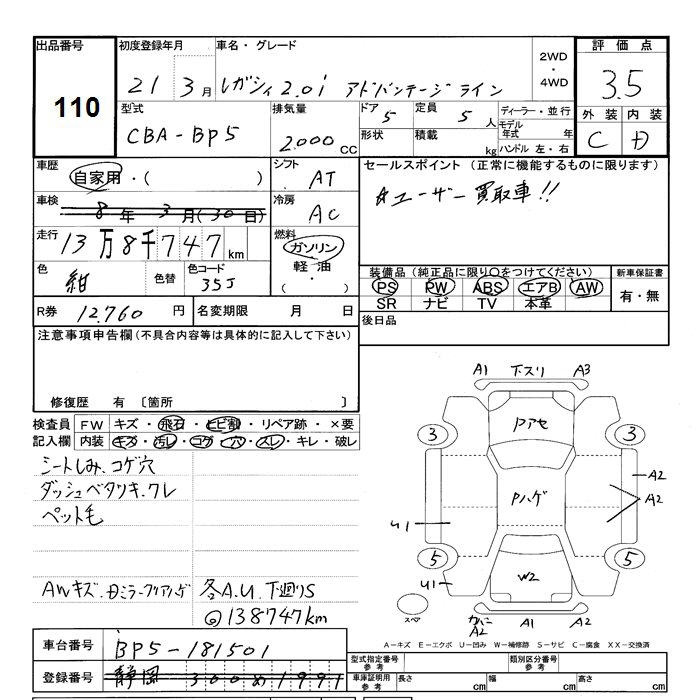 出品番号
110
初度登録年月
21 3月
車名・グレード
レガシィ 2.0i アドバンテージ ライン
2WD
・
4WD
評価点
3.5
型式
CBA-BP5
排気量
2.000 CC
ドア 5
形状
定員 5 人
積載 kg
ディーラー・並行
モデル年式 年
ハンドル 左・右
外装 内装
C D
車歴
自家用・( )
シフト
AT
セールスポイント（正常に機能するものに限ります）
☆ユーザー買取車!!
車検
8年 3月(30日)
冷房
AC
走行
13万8千747km
燃料
ガソリン
軽油
( ・ )
色
紺
色替
色コード
35J
装備品（純正品に限り〇をつけてください）
PS PW ABS エアB AW
SR ナビ TV 本革
新車保証書
有・無
R券 12,760円
名変期限 月 日
後日品
注意事項申告欄（不具合内容等は具体的に記入して下さい）
修復歴 有〔箇所 〕
検査員記入欄
FW キズ・飛石・ヒビ割・リペア跡・×要
内装 キズ・汚レ・コゲ・穴・スレ・キレ・破レ
シートしみ、コゲ穴
ダッシュベタツキ、クレ
ペット毛
AWキズ、
各A.U、下廻りS
◎138747km
A1 下スリ A3
Pアセ
3 3
A2
A2
Pハゲ
U1
5 5
U1
W2
スペア
A2 A1 A2
A－キズ E－エクボ U－凹み W－補修跡 S－サビ C－腐食 XX－交換済
車台番号
BP5-181501
登録番号
静岡 300 め 1991
型式指定番号
参考
類別区分番号
参考
車庫証明用
参考
長さ cm
幅 cm
高さ cm